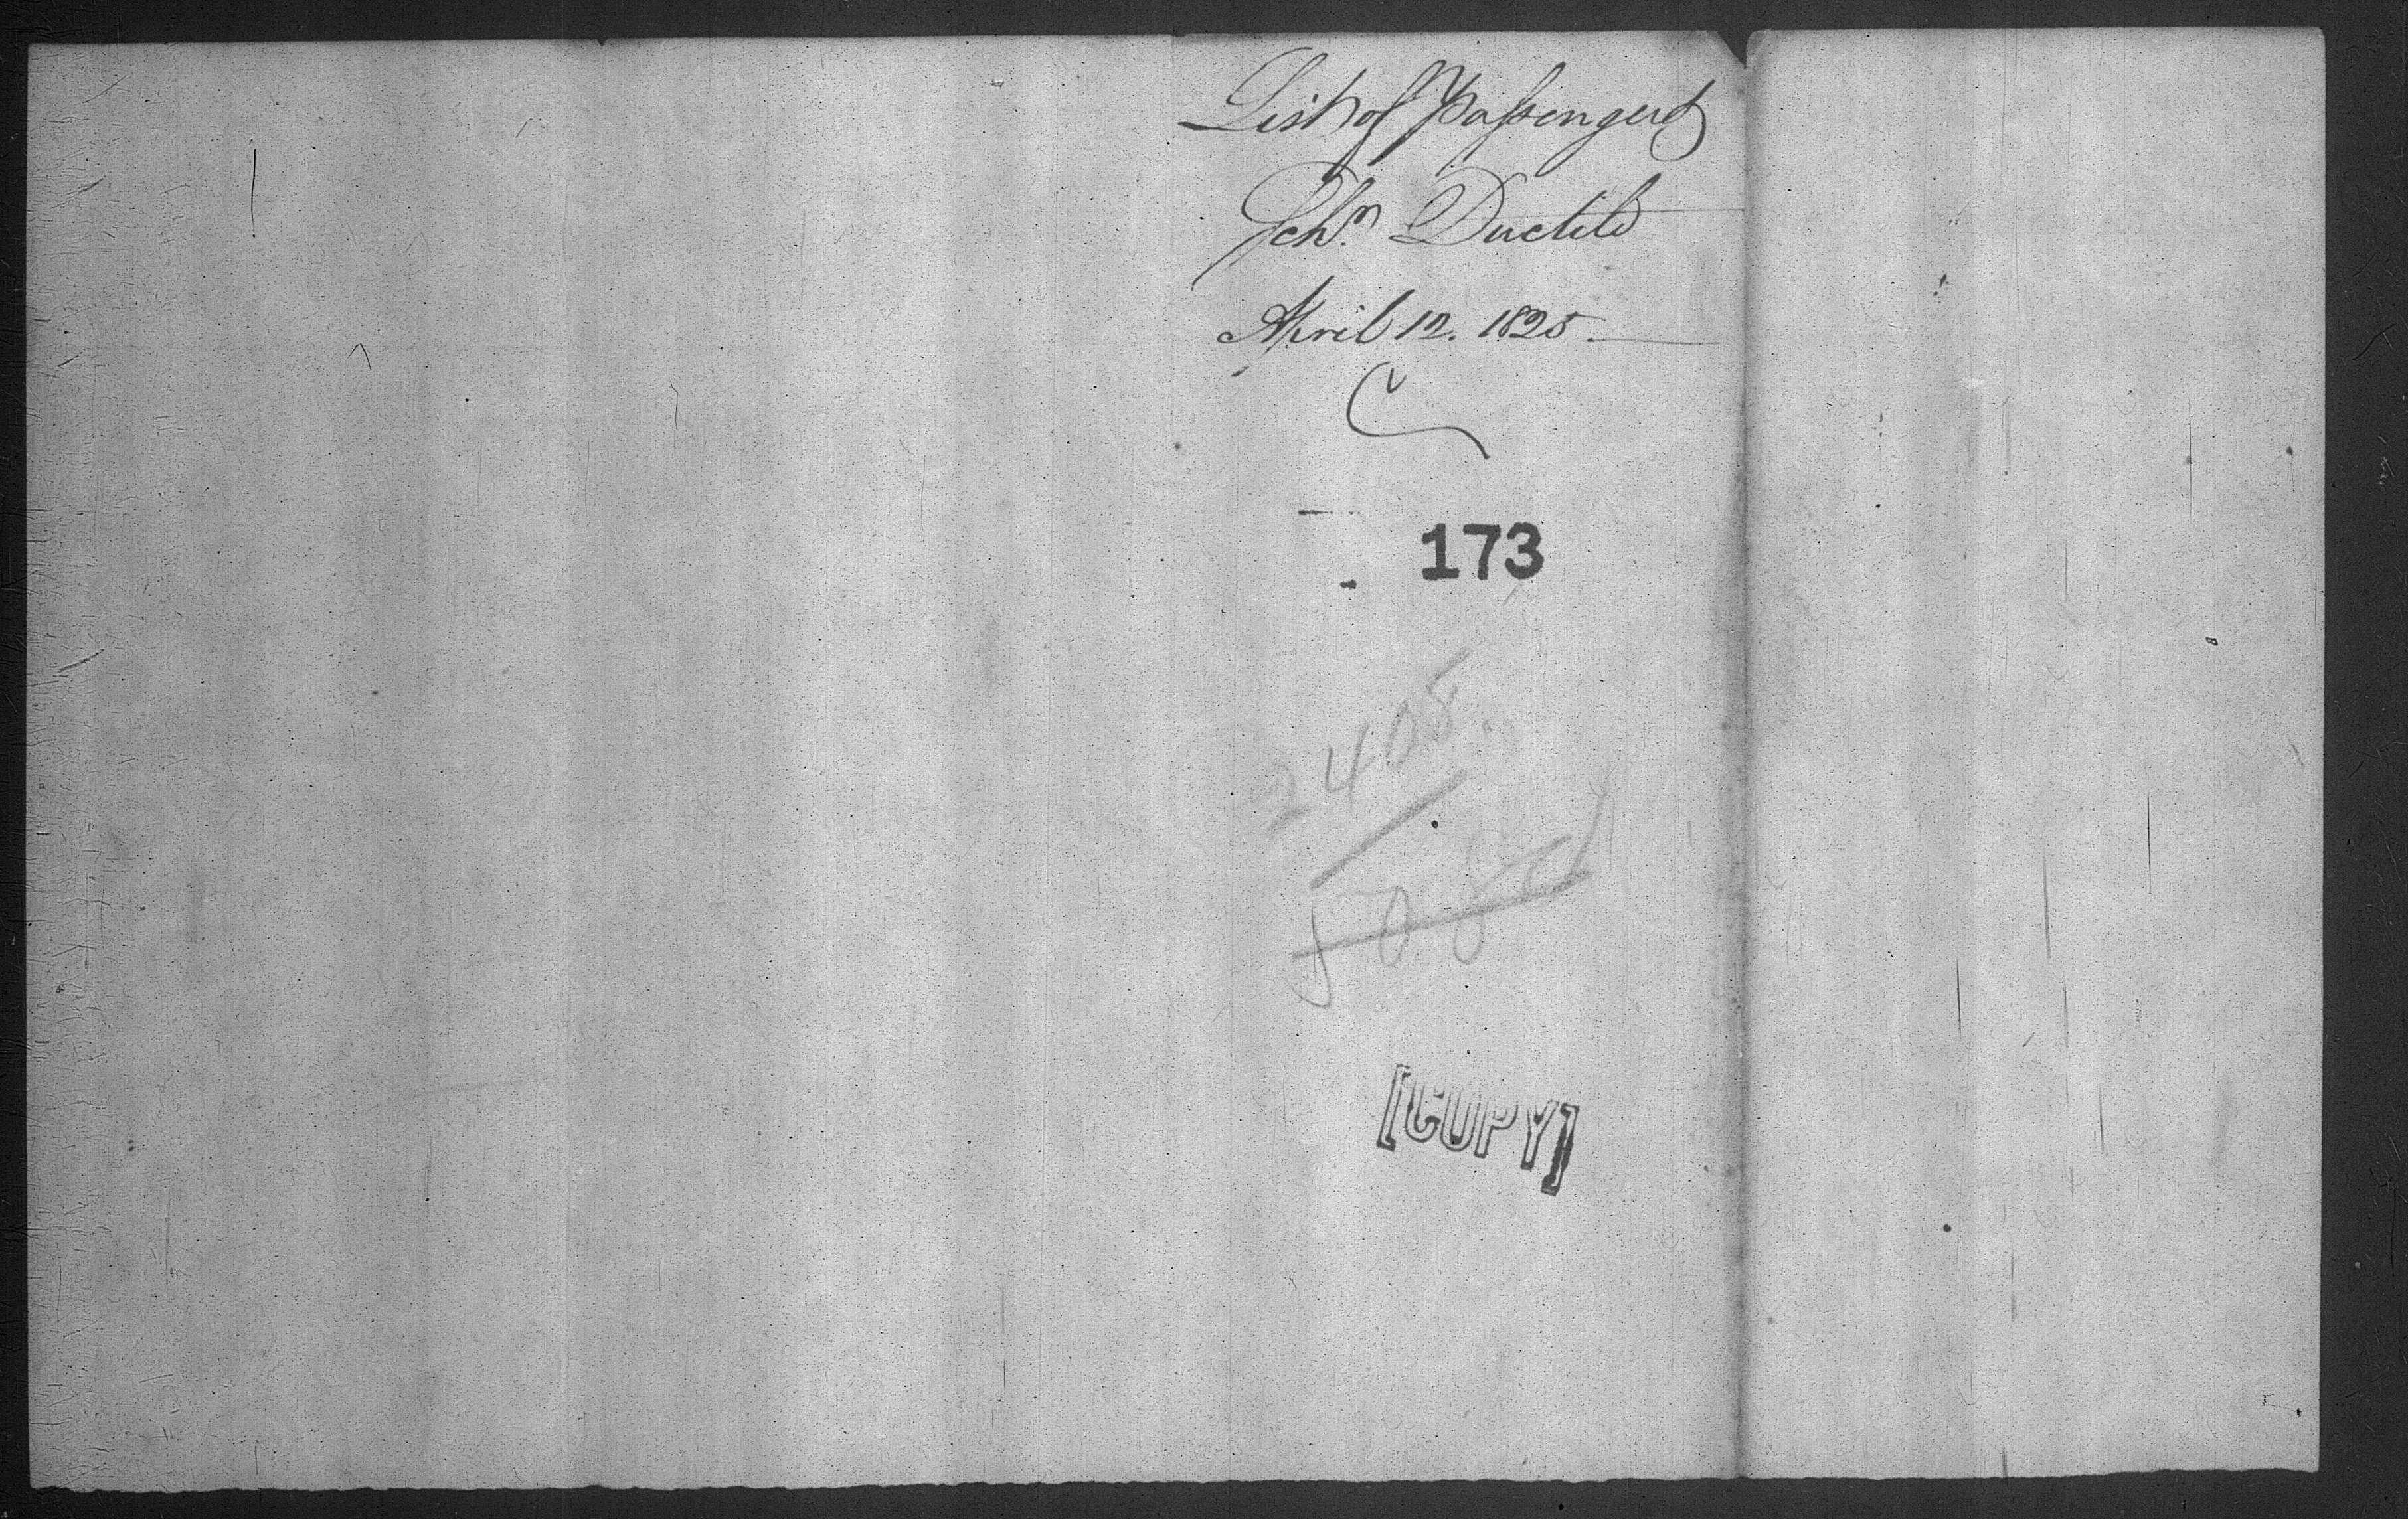 List of Passengers
Schr. Ductile
April 12. 1825.
173
2408.
508
[COPY]